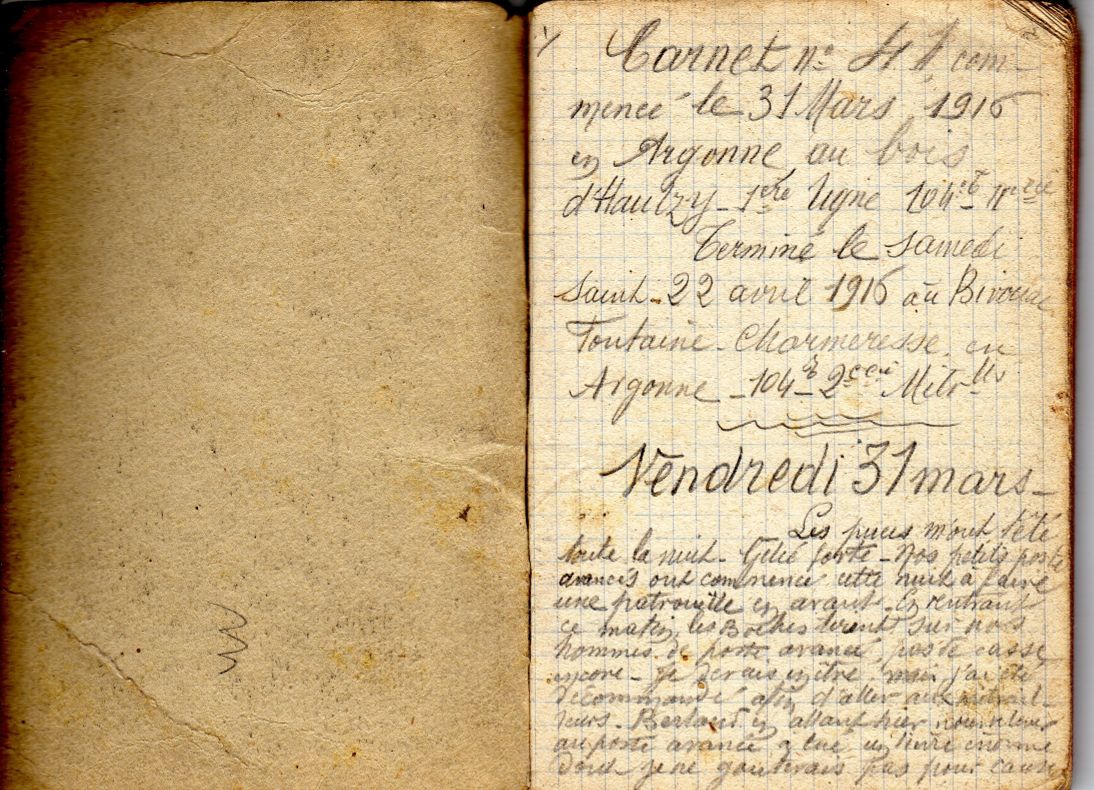 Carnet n° 4 com-
mencé le 31 Mars 1916
en Argonne au bois
d'Hauzy - 1ère ligne 104e 11e Cie
Terminé le Samedi
Saint - 22 avril 1916 au Bivouac
Fontaine - Charmeresse en
Argonne - 104e - 2e Cie Mitr
Vendredi 31 mars -
Les puces m'ont tété
toute la nuit - Gelée forte - Nos petits postes
avancés ont commencé cette nuit à faire
une patrouille en avant - En rentrant
ce matin les Boches tirent sur nos
hommes de poste avancé, pas de casse
encore - Je devais en être mais j'ai été
décommandé afin d'aller aux mitrail-
leurs - Bertaud en allant hier
au poste avancé a tué un lièvre énorme
dont je ne gouterais pas pour cause